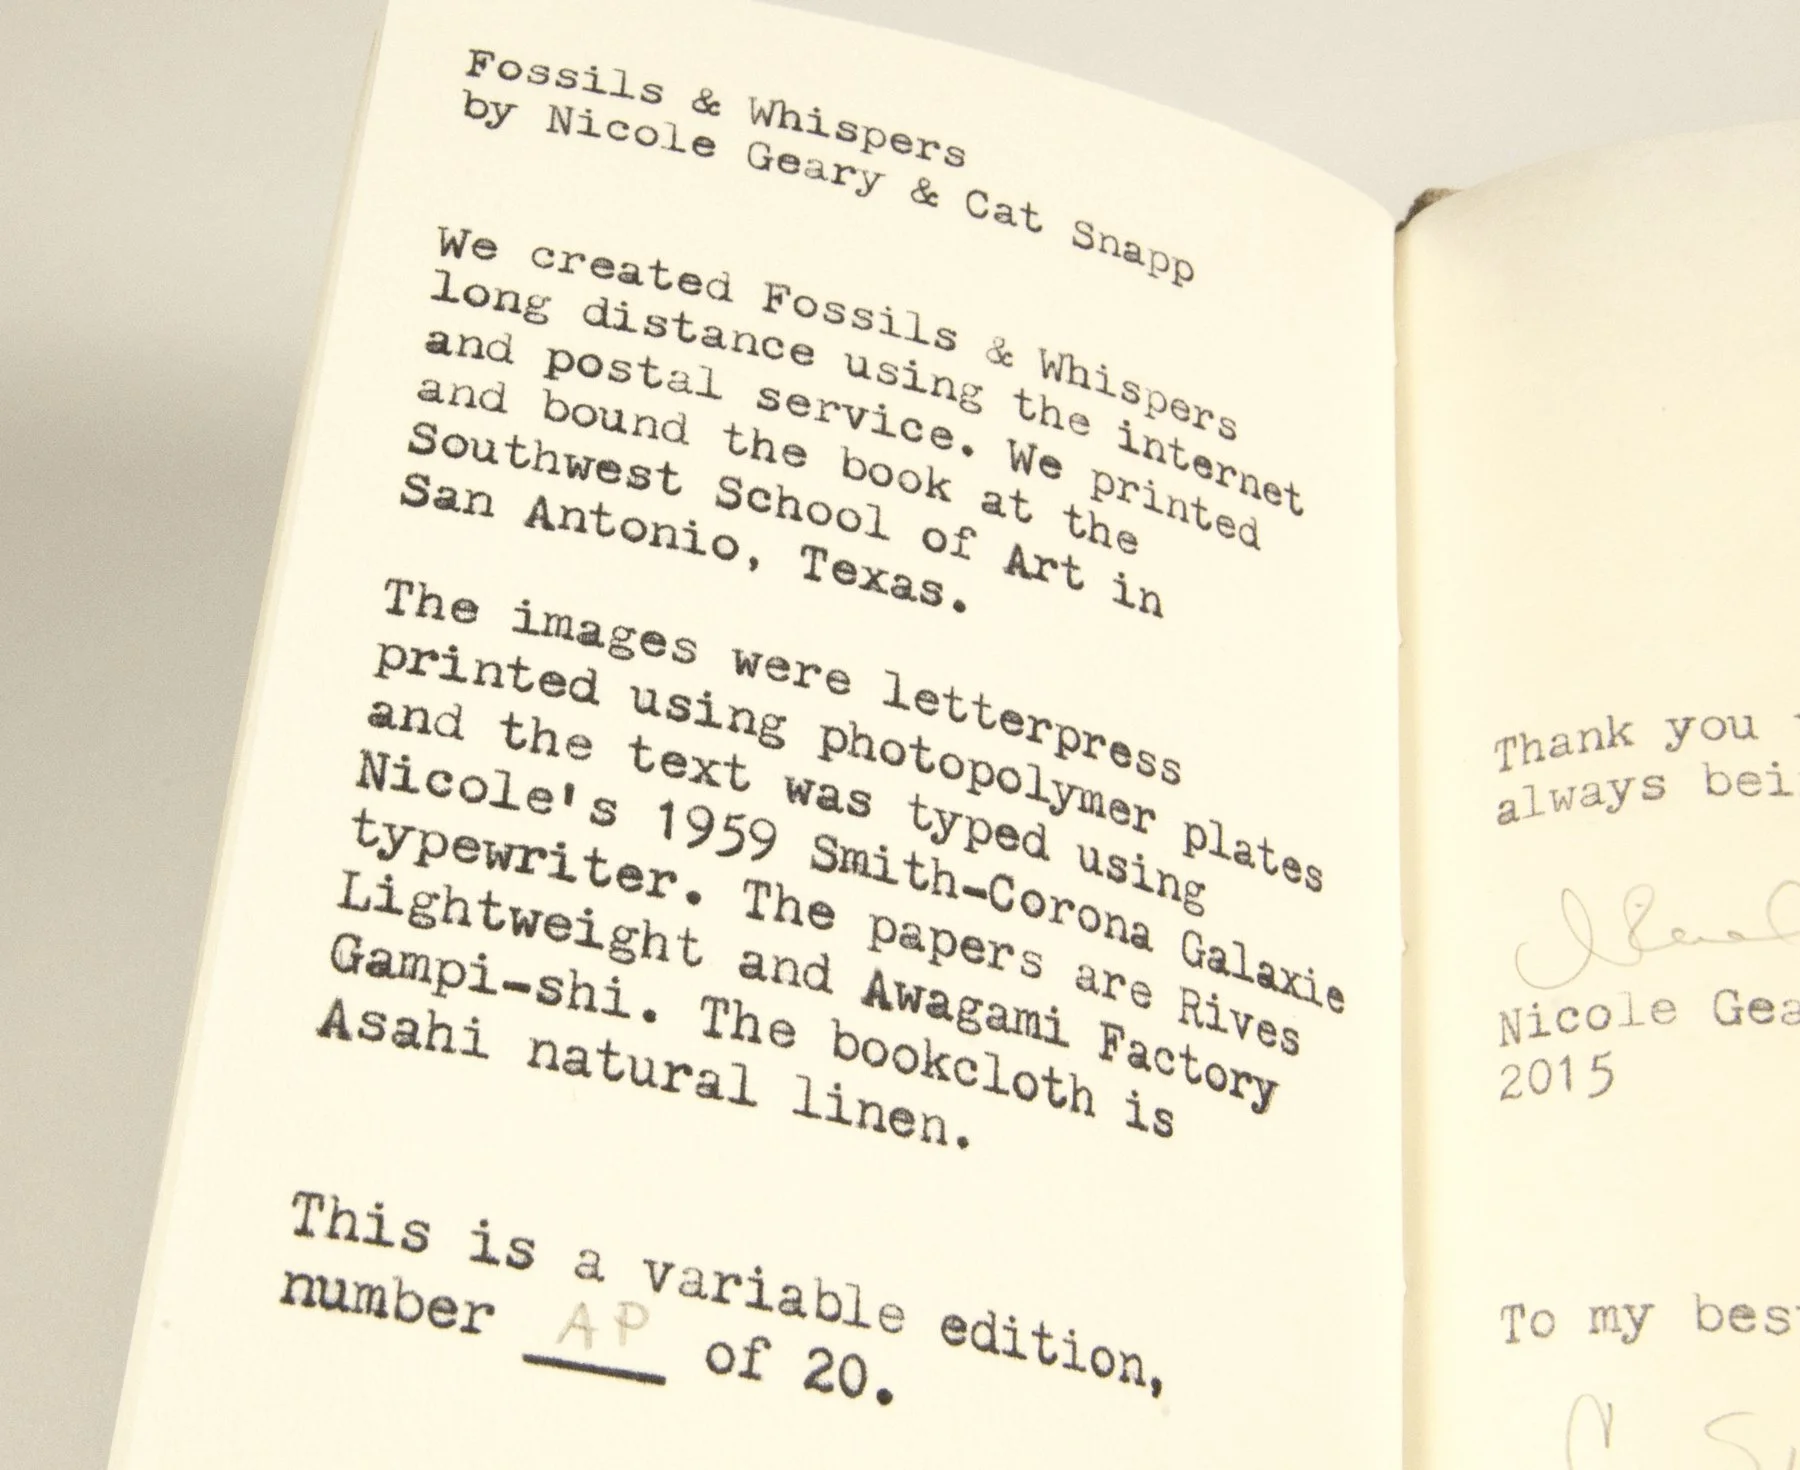 Fossils & Whispers
by Nicole Geary & Cat Snapp
We created Fossils & Whispers
long distance using the internet
and postal service. We printed
and bound the book at the
Southwest School of Art in
San Antonio, Texas.
The images were letterpress
printed using photopolymer plates
and the text was typed using
Nicole's 1959 Smith-Corona Galaxie
typewriter. The papers are Rives
Lightweight and Awagami Factory
Gampi-shi. The bookcloth is
Asahi natural linen.
This is a variable edition,
number AP of 20.
Thank you
always bei
Nicole Gea
2015
To my bes